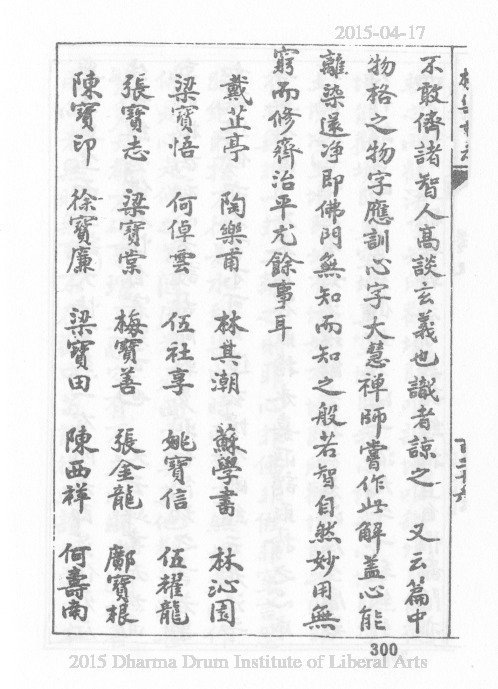 2015-04-17
不敢儕諸智人高談玄義也識者諒之 又云篇中
物格之物字應訓心字大慧禅師嘗作此解盖心能
離染還净即佛門無知而知之般若智自然妙用無
窮而修齊治平尤餘事耳
戴芷亭 陶樂甫 林其潮 蘇學書 林沁園
梁寶悟 何倬雲 伍社享 姚寶信 伍耀龍
張寶志 梁寶棠 梅寶善 張金龍 鄺寶根
陳寶印 徐寶廉 梁寶田 陳西祥 何壽南
300
2015 Dharma Drum Institute of Liberal Arts